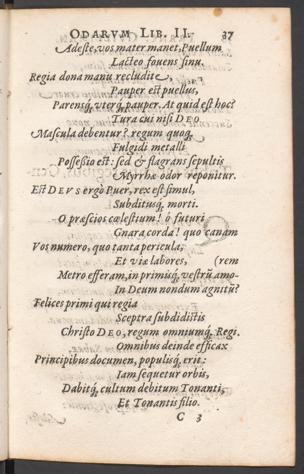 ODARVM LIB. II. 37
Adeste, vos mater manet, Puellum
Lacteo fouens sinu.
Regia dona manu recludite,
Pauper est puellus,
Parensq́, vterq́, pauper. At quid est hoc?
Tura cui nisi DEO
Mascula debentur? regum quoq,
Fulgidi metalli
Possessio est: sed & flagrans sepultis
Myrrhæ odor reponitur.
Est DEVS ergò Puer, rex est simul,
Subditusq́, morti.
O præscios cœlestium! ô futuri
Gnara corda! quo canam
Vos numero, quo tanta pericula,
Et viæ labores, (rem
Metro efferam, in primisq́, vestrũ amo-
In Deum nondum agnitũ?
Felices primi qui regia
Sceptra subdidistis
Christo DEO, regum omniumq́, Regi.
Omnibus deinde efficax
Principibus documen, populisq́, erit:
Iam sequetur orbis,
Dabitq́, cultum debitum Tonanti,
Et Tonantis filio.
C 3